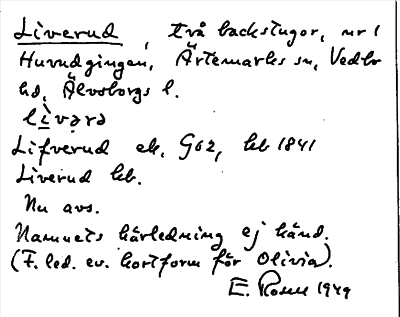 Liverud, två backstugor, nr 1
Huvudgingen, Ärtemarks sn, Vedbo
hd, Älvsborgs l.
li̱və̣rə
Lifverud ek. G62, hb 1841
Liverud hb.
Nu avs.
Namnets härledning ej känd.
(F. led. ev. kortform för Olivia).
E. Rosell 1949